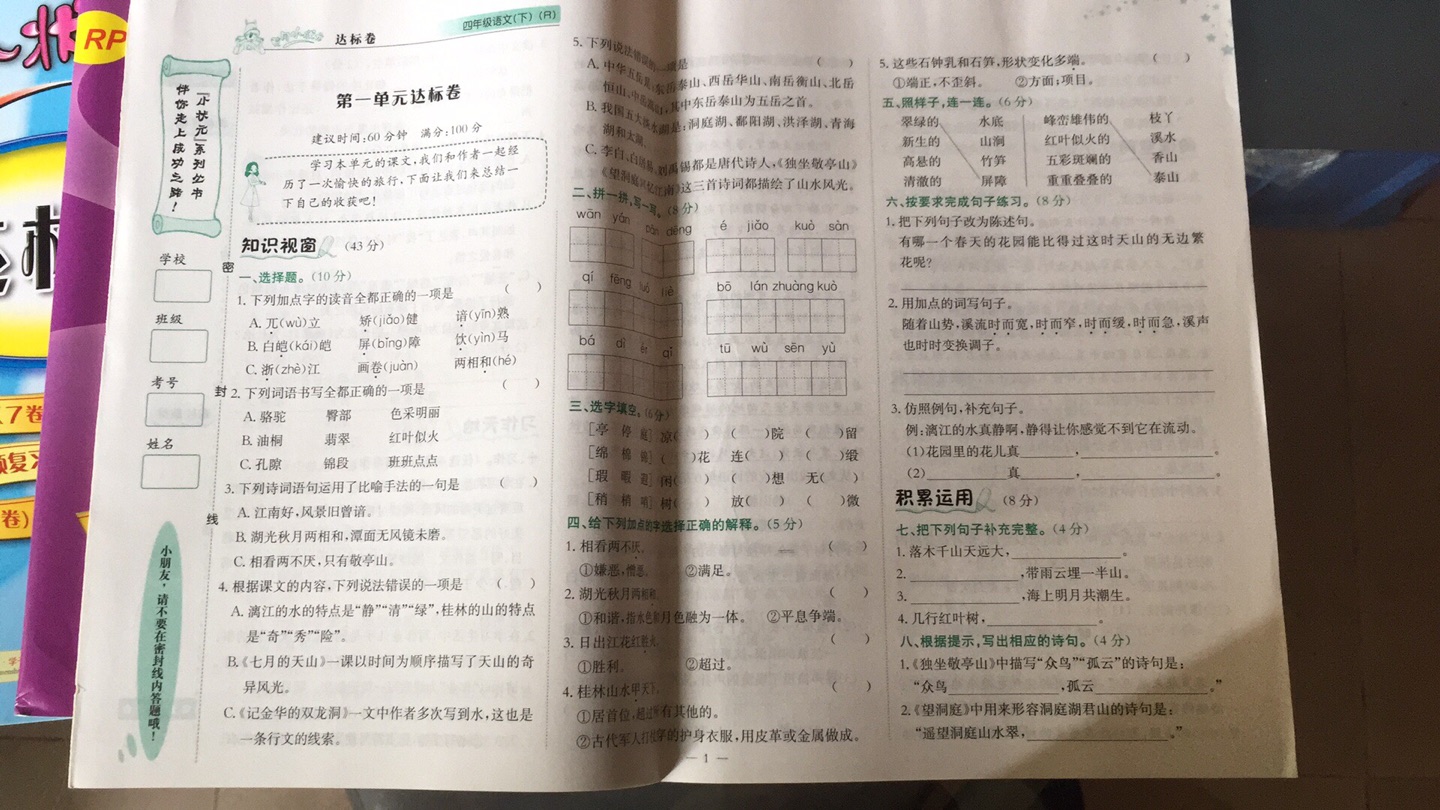 RP
四年级语文(下)(R)
达标卷
“小状元”系列丛书
伴你走上成功之路！
学校
班级
考号
姓名
密
封
线
小朋友，请不要在密封线内答题哦！
第一单元达标卷
建议时间:60分钟 满分:100分
学习本单元的课文,我们和作者一起经
历了一次愉快的旅行,下面让我们来总结一
下自己的收获吧!
知识视窗 (43分)
一、选择题。(10分)
1. 下列加点字的读音全都正确的一项是 ( )
A. 兀(wù)立 矫(jiǎo)健 谙(yīn)熟
B. 白皑(kái)皑 屏(bǐng)障 饮(yìn)马
C. 浙(zhè)江 画卷(juàn) 两相和(hé)
2. 下列词语书写全都正确的一项是 ( )
A. 骆驼 臀部 色采明丽
B. 油桐 翡翠 红叶似火
C. 孔隙 锦段 班班点点
3. 下列诗词语句运用了比喻手法的一句是 ( )
A. 江南好,风景旧曾谙。
B. 湖光秋月两相和,潭面无风镜未磨。
C. 相看两不厌,只有敬亭山。
4. 根据课文的内容,下列说法错误的一项是 ( )
A. 漓江的水的特点是“静”“清”“绿”,桂林的山的特点
是“奇”“秀”“险”。
B.《七月的天山》一课以时间为顺序描写了天山的奇
异风光。
C.《记金华的双龙洞》一文中作者多次写到水,这也是
一条行文的线索。
5. 下列说法错误的一项是 ( )
A. 中华五岳是:东岳泰山、西岳华山、南岳衡山、北岳
恒山、中岳嵩山,其中东岳泰山为五岳之首。
B. 我国五大淡水湖是:洞庭湖、鄱阳湖、洪泽湖、青海
湖和太湖。
C. 李白、白居易、刘禹锡都是唐代诗人,《独坐敬亭山》
《望洞庭》《忆江南》这三首诗词都描绘了山水风光。
二、拼一拼,写一写。(8分)
wān yán pān dēng é jiǎo kuò sàn
qí fēng luó liè bō lán zhuàng kuò
bá dì ér qǐ tū wù sēn yù
三、选字填空。(6分)
[亭 停 庭] 凉( ) ( )院 ( )留
[绵 棉 锦] ( )花 连( ) ( )缎
[瑕 暇 遐] 闲( ) ( )想 无( )
[稍 梢 哨] 树( ) 放( ) ( )微
四、给下列加点的字选择正确的解释。(5分)
1. 相看两不厌。 ( )
①嫌恶,憎恶。 ②满足。
2. 湖光秋月两相和。 ( )
①和谐,指水色和月色融为一体。 ②平息争端。
3. 日出江花红胜火。 ( )
①胜利。 ②超过。
4. 桂林山水甲天下。 ( )
①居首位,超过所有其他的。
②古代军人打仗穿的护身衣服,用皮革或金属做成。
5. 这些石钟乳和石笋,形状变化多端。 ( )
①端正,不歪斜。 ②方面;项目。
五、照样子,连一连。(6分)
翠绿的 水底 峰峦雄伟的 枝丫
新生的 山涧 红叶似火的 溪水
高悬的 竹笋 五彩斑斓的 香山
清澈的 屏障 重重叠叠的 泰山
六、按要求完成句子练习。(8分)
1. 把下列句子改为陈述句。
有哪一个春天的花园能比得过这时天山的无边繁
花呢?
2. 用加点的词写句子。
随着山势,溪流时而宽,时而窄,时而缓,时而急,溪声
也时时变换调子。
3. 仿照例句,补充句子。
例:漓江的水真静啊,静得让你感觉不到它在流动。
(1)花园里的花儿真________,________________。
(2)____________真________,________________。
积累运用 (8分)
七、把下列句子补充完整。(4分)
1. 落木千山天远大,________________。
2. ________________,带雨云埋一半山。
3. ________________,海上明月共潮生。
4. 几行红叶树,________________。
八、根据提示,写出相应的诗句。(4分)
1.《独坐敬亭山》中描写“众鸟”“孤云”的诗句是:
“众鸟________________,孤云________________。”
2.《望洞庭》中用来形容洞庭湖君山的诗句是:
“遥望洞庭山水翠,____________________。”
— 1 —